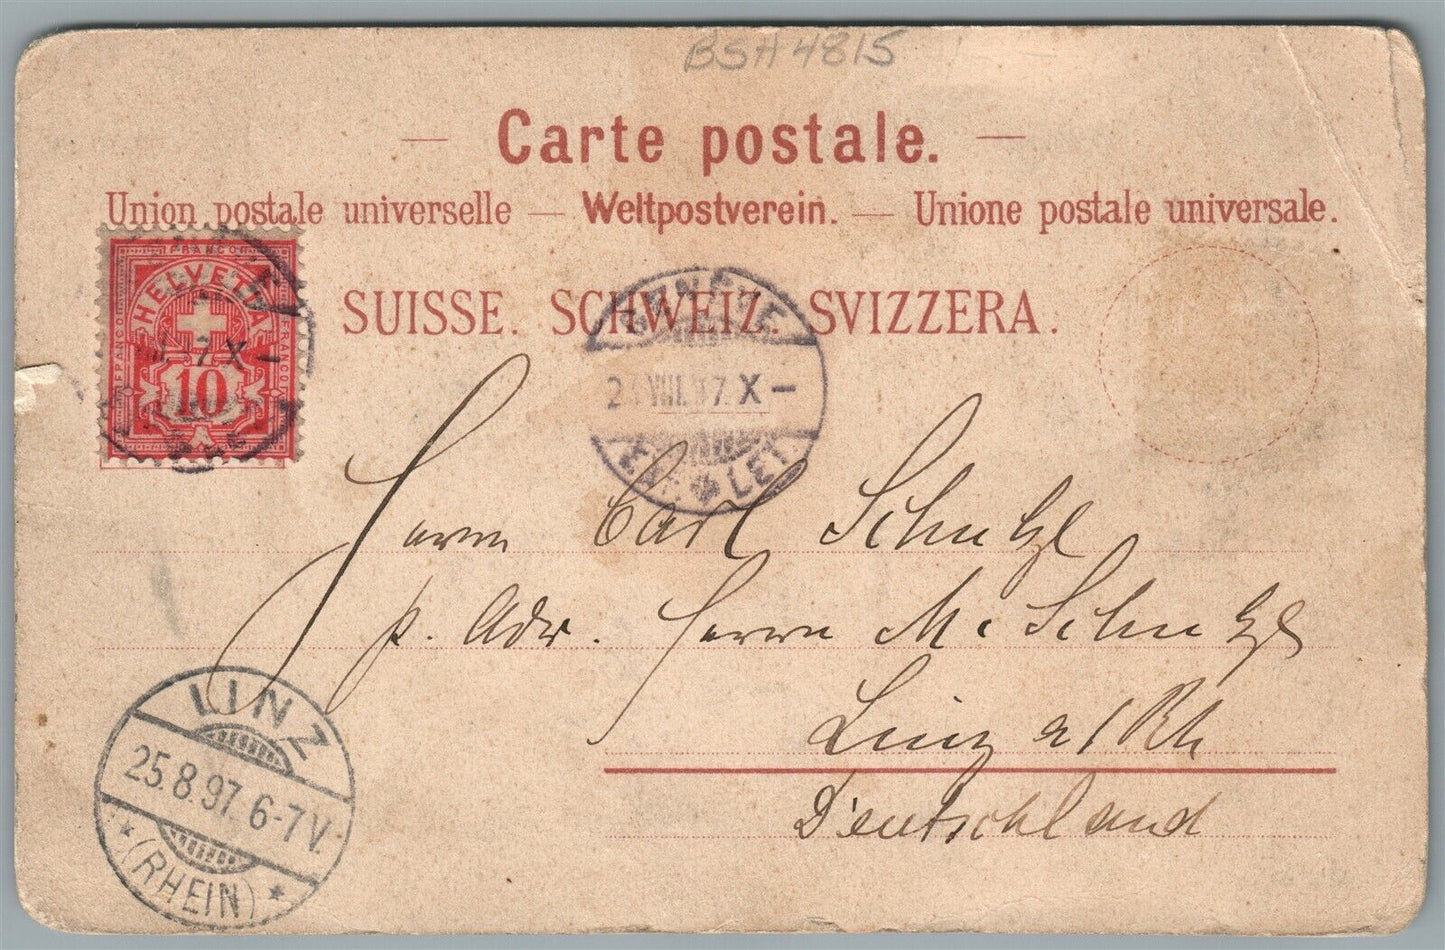 BSH 4815
Carte postale.
Union postale universelle — Weltpostverein. — Unione postale universale.
SUISSE. SCHWEIZ. SVIZZERA.
FRANCO
HELVETIA
FRANCO
FRANCO
10
7. X –
VIII. 97. X –
LET.
Herrn Carl Schutzl
p. Adr. Herrn M. Schutzl
Linz a/Rh
Deutschland
LINZ
25.8.97. 6-7V.
* (RHEIN) *